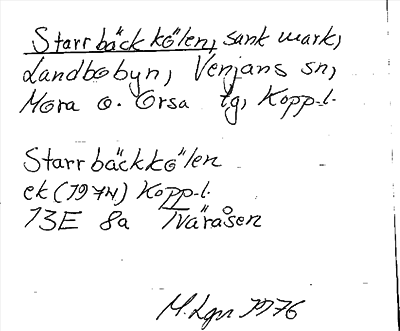 Starrbäckkölen, sank mark,
Landbobyn, Venjans sn,
Mora o. Orsa tg, Kopp.l.
Starrbäckkölen
ek (1974) Kopp.l.
13E 8a Tväråsen
M.Lgn 1976